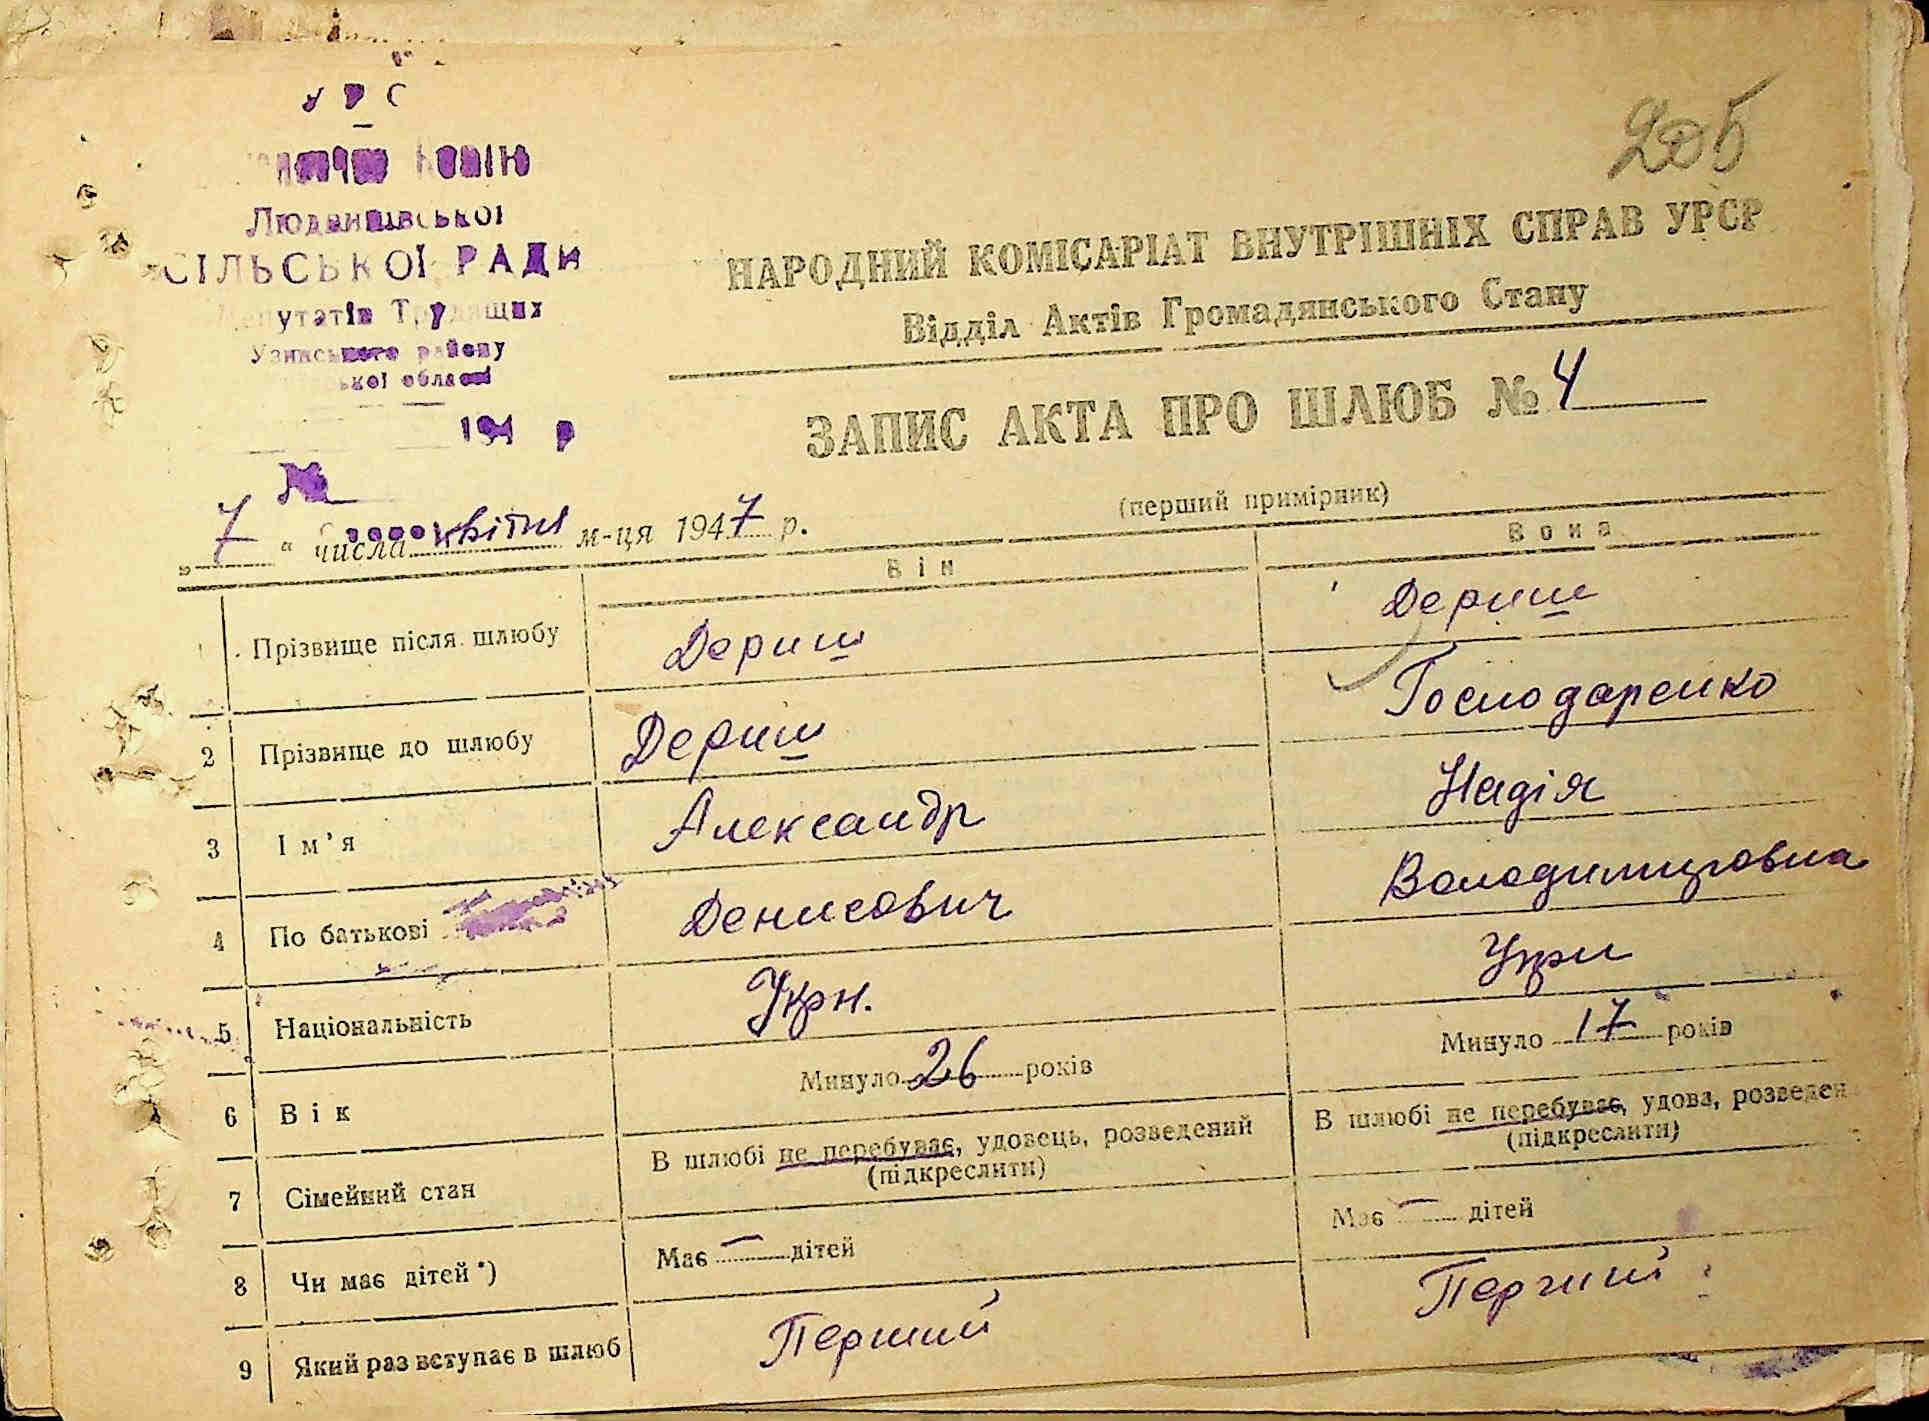 УРС
Людвинівської
СІЛЬСЬКОЇ РАДИ
Депутатів Трудящих
Узинського району
ської області
194 р
№
205
НАРОДНИЙ КОМІСАРІАТ ВНУТРІШНІХ СПРАВ УРСР
Відділ Актів Громадянського Стану
ЗАПИС АКТА ПРО ШЛЮБ № 4
(перший примірник)
„ 7 “ числа квітня м-ця 1947 р.
Він Вона
1 Прізвище після шлюбу Дериш Дериш
2 Прізвище до шлюбу Дериш Господаренко
3 Ім’я Александр Надія
4 По батькові Денисович Володимировна
5 Національність Укрн. Укрн
6 Вік Минуло 26 років Минуло 17 років
7 Сімейний стан В шлюбі не перебуває, удовець, розведений (підкреслити) В шлюбі не перебуває, удова, розведен (підкреслити)
8 Чи має дітей *) Має — дітей Має — дітей
9 Який раз вступає в шлюб Перший Перший